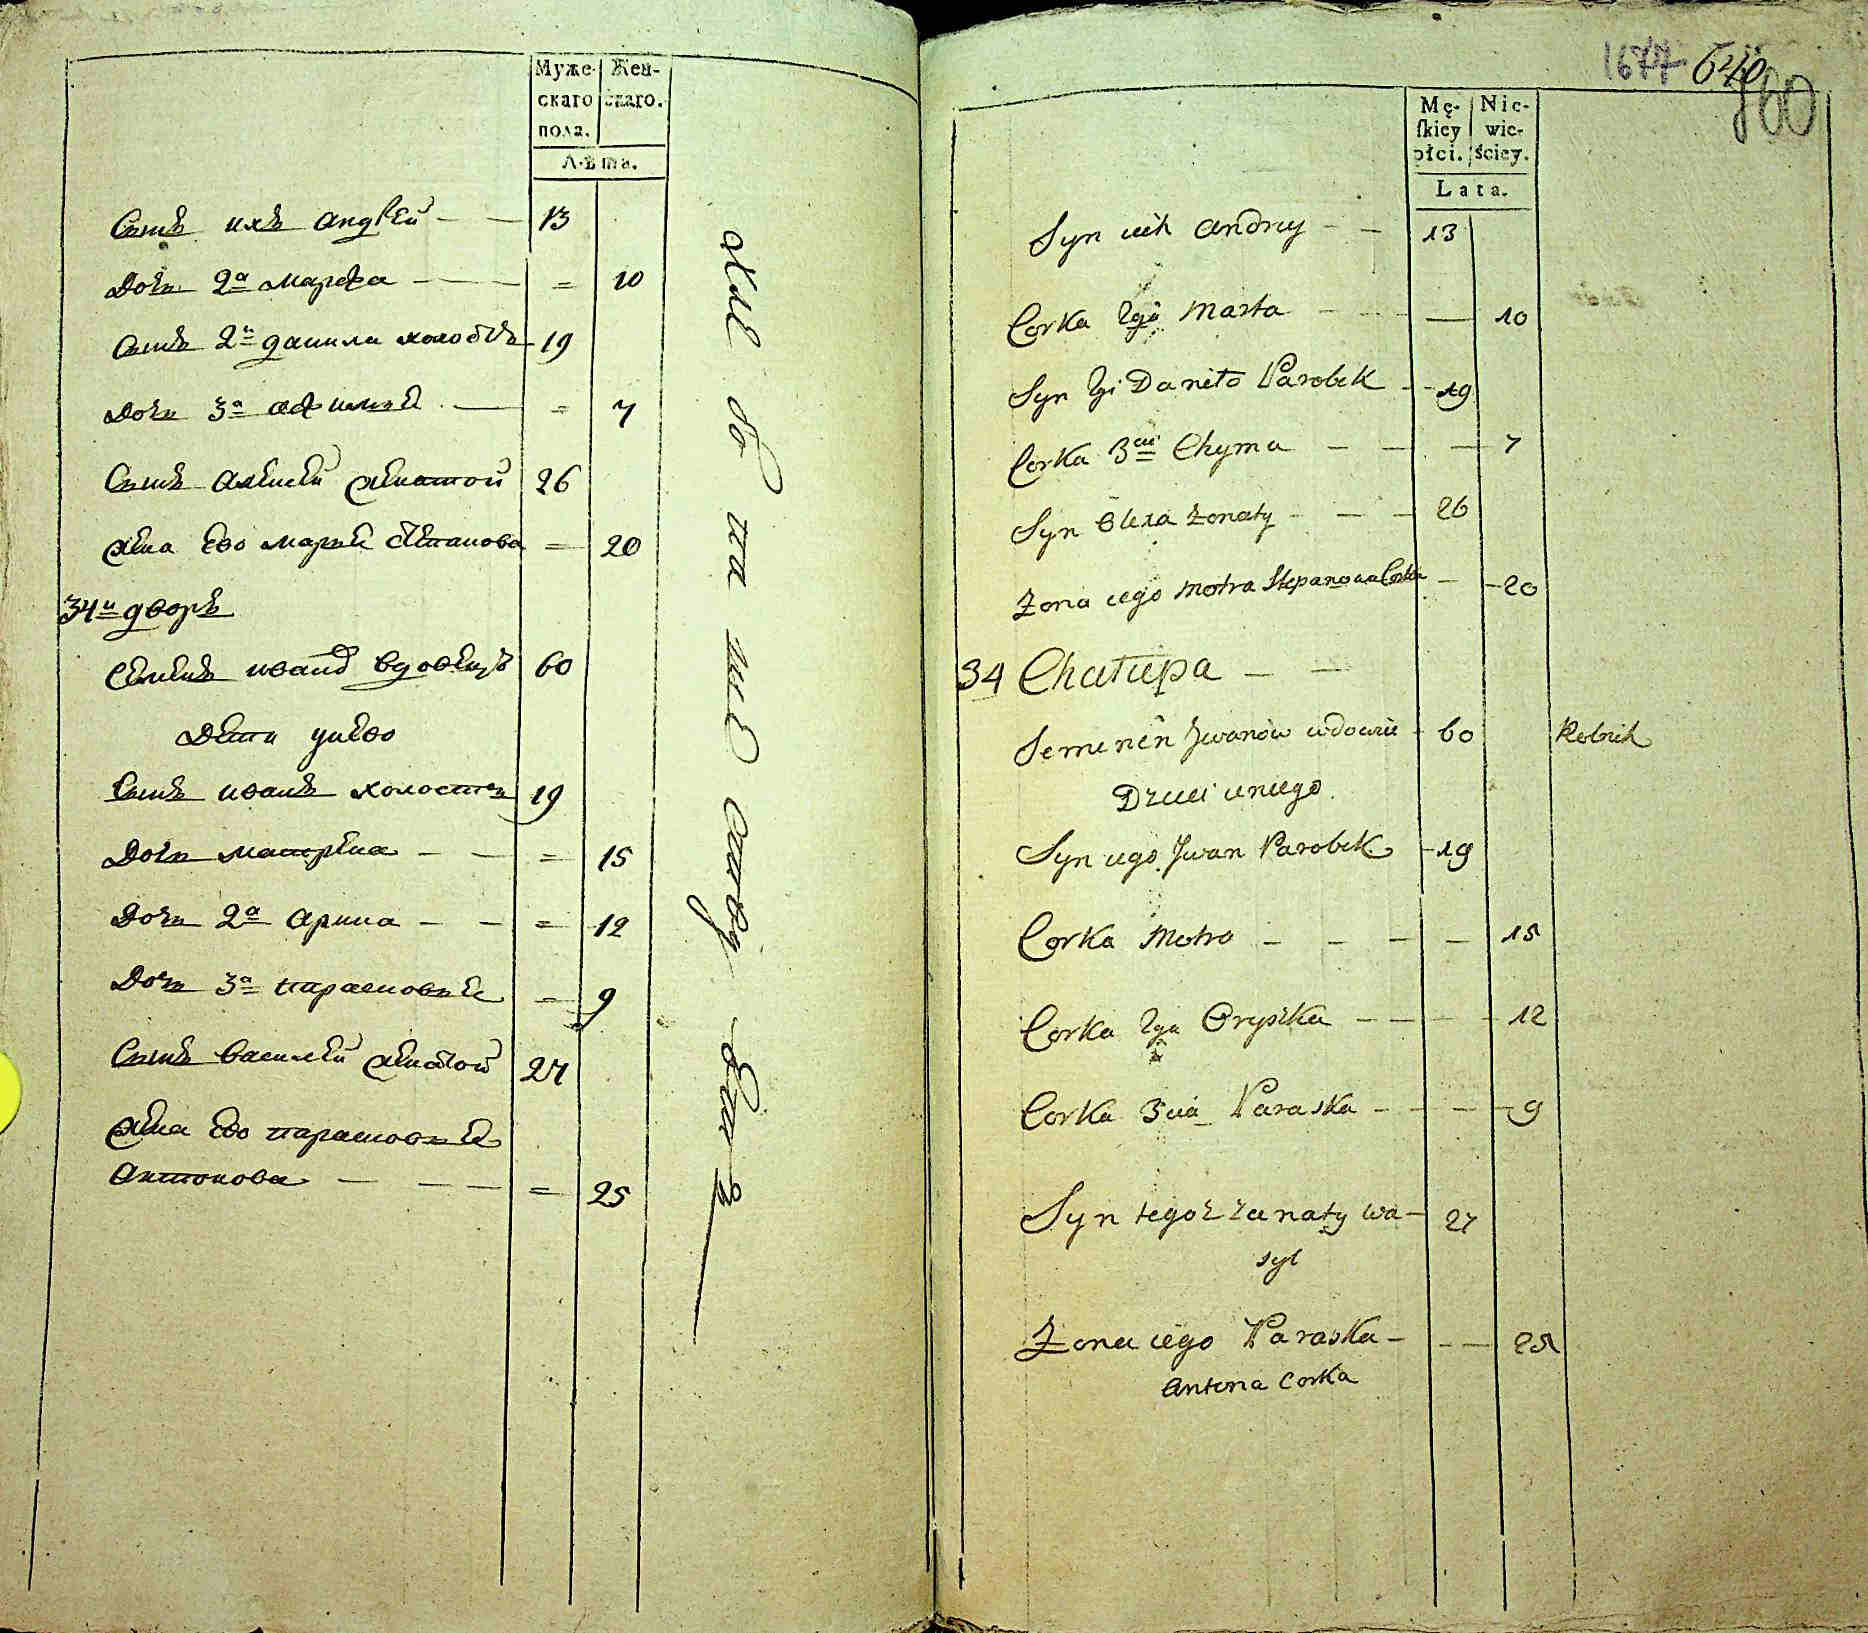 Муже- Жен-
скаго скаго.
пола.
Лѣта.
Сынъ ихъ Андрей — — 13
Дочь 2я Марфа — — = 10
Сынъ 2й Данила холостъ 19
Дочь 3я — = 7
Сынъ Алексей женатой 26
Жена ево Марья Степанова = 20
34й дворъ
Семенъ Иванов вдовецъ 60
Дети у нево
Сынъ Иванъ холостой 19
Дочь Матрена — — = 15
Дочь 2я Арина — — = 12
Дочь 3я Парасковья = 9
Сынъ Василей женатой 27
Жена ево Парасковья
Антонова — — — = 25
1677 640
860
Mę- Nie-
skiey wie-
płci. ściey.
Lata.
Syn ich Andrey — — 13
Corka 2ga Marta — — — 10
Syn 2gi Daniło Parobek — 19
Corka 3cia Chyma — — — 7
Syn Olexa żonaty — — — 26
Żona iego Motra Stepanowa Corka — — 20
34 Chałupa — —
Semen Iwanow wdowiec 60 Rolnik
Dzieci u niego
Syn iego Iwan Parobek — 19
Corka Motra — — — — 15
Corka 2ga Oryszka — — — — 12
Corka 3cia Paraska — — — — 9
Syn tegoż żonaty Wa- 27
syl
Żona iego Paraska — — — 25
Antona Corka